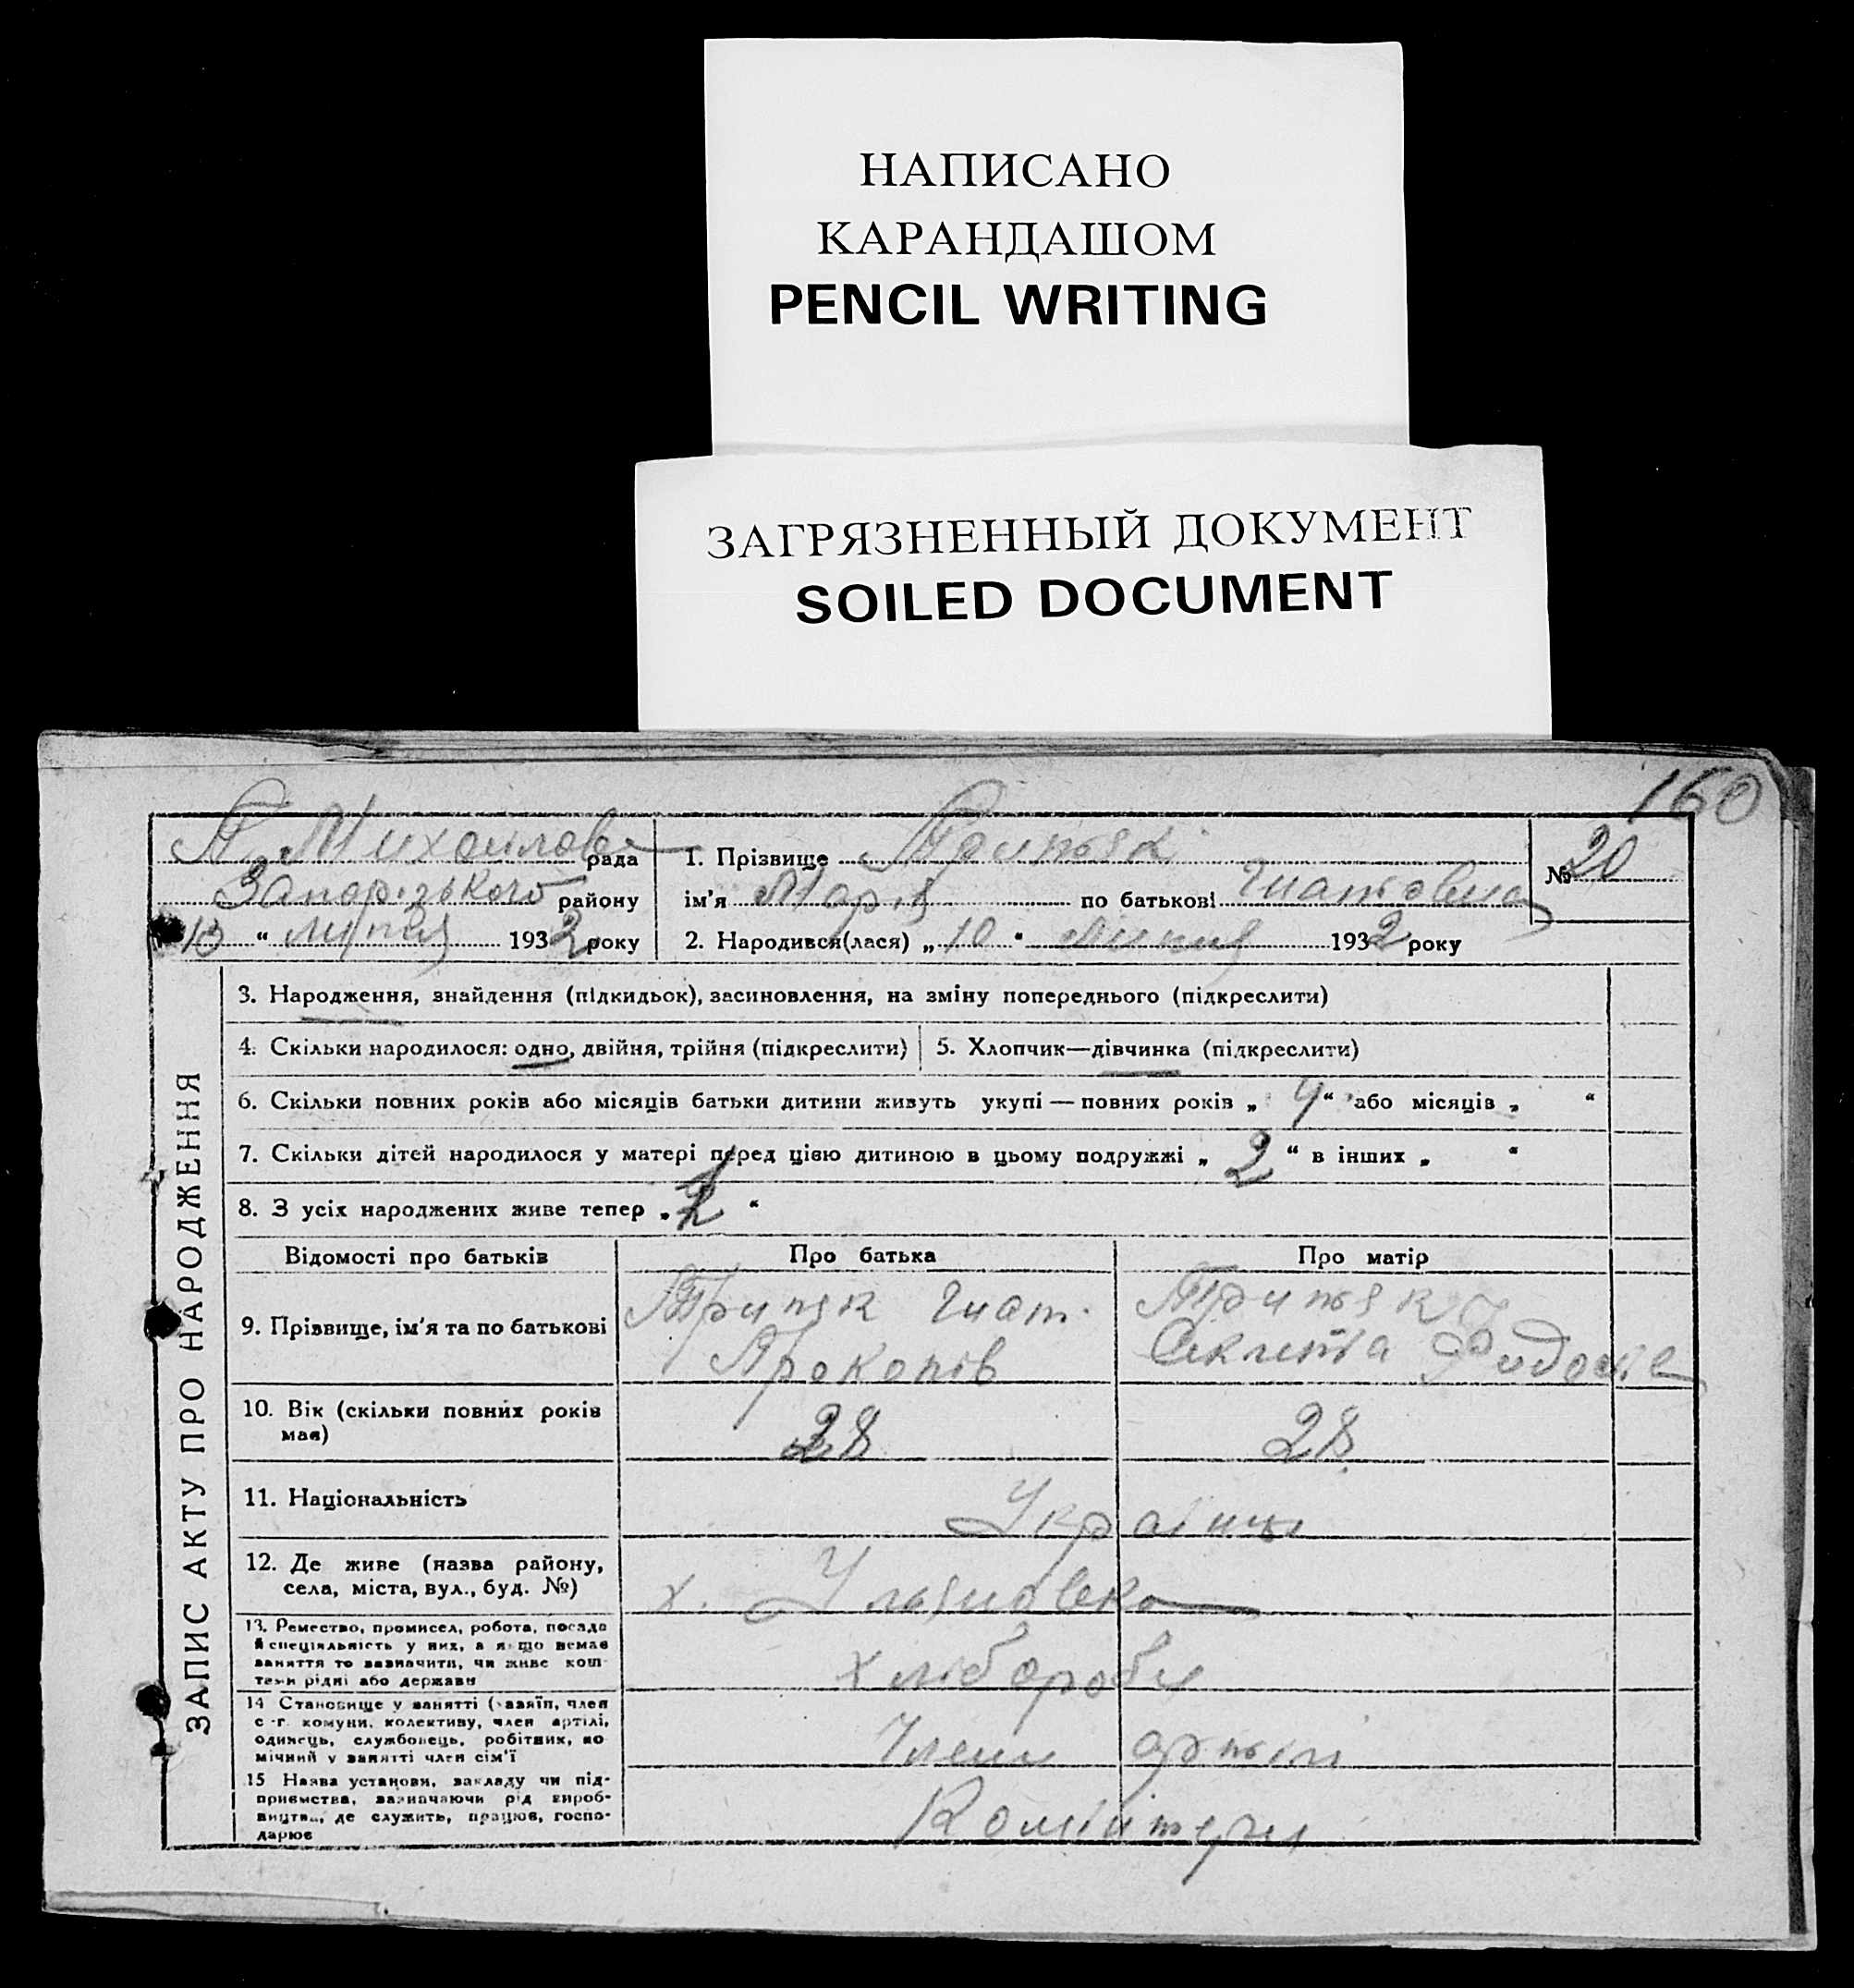 НАПИСАНО
КАРАНДАШОМ
PENCIL WRITING
ЗАГРЯЗНЕННЫЙ ДОКУМЕНТ
SOILED DOCUMENT
160
рада
Запорізького району
13 " липня 1932 року
1. Прізвище
ім'я Марія по батькові Гнатовна
№ 20
2. Народився(лася) „ 10 " Липня 1932 року
ЗАПИС АКТУ ПРО НАРОДЖЕННЯ
3. Народження, знайдення (підкидьок), засиновлення, на зміну попереднього (підкреслити)
4. Скільки народилося: одно, двійня, трійня (підкреслити) 5. Хлопчик—дівчинка (підкреслити)
6. Скільки повних років або місяців батьки дитини живуть укупі — повних років „ " або місяців „ "
7. Скільки дітей народилося у матері перед цією дитиною в цьому подружжі „ 2 " в інших „ "
8. З усіх народжених живе тепер „ "
Відомості про батьків Про батька Про матір
9. Прізвище, ім'я та по батькові
Гнат
Прокопів
10. Вік (скільки повних років має) 28 28
11. Національність Українці
12. Де живе (назва району,
села, міста, вул., буд. №)
х. Уляновка
13. Ремество, промисел, робота, посада
й спеціяльність у них, а якщо немає
заняття то зазначити, чи живе кош-
тами рідні або держави
хлібороби
14 Становище у занятті (хазяїн, член
с.-г. комуни, колективу, член артілі,
одинець, службовець, робітник, по
мічний у занятті член сім'ї
Члени артілі
15 Назва установи, закладу чи під-
приємства, зазначаючи рід вироб-
ництва, де служить, працює, госпо-
дарює
Комінтерн